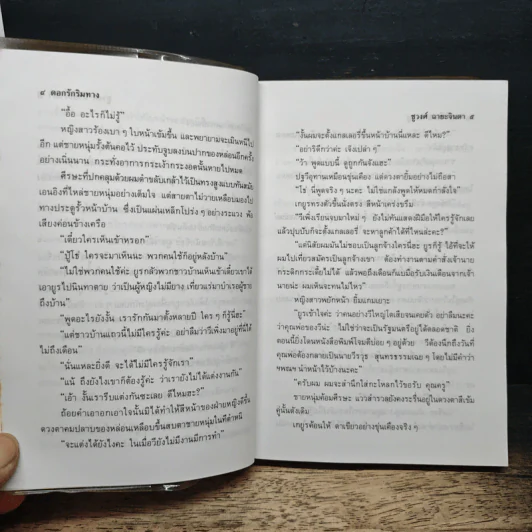 ๔ ดอกรักริมทาง
"อื้อ อะไรก็ไม่รู้"
หญิงสาวร้องเบา ๆ ใบหน้าเข้มขึ้น และพยายามจะเมินหนีไป
อีก แต่ชายหนุ่มรั้งต้นคอไว้ ประทับจูบลงบนปากของหล่อนอีกครั้ง
อย่างเนิ่นนาน กระทั่งอาการกระเง้ากระงอดนั้นหายไปหมด
ศีรษะที่ปกคลุมด้วยผมดำขลับเกล้าไว้เป็นทรงสูงแบบทันสมัย
เอนอิงที่ไหล่ชายหนุ่มอย่างเต็มใจ แต่สายตาไม่วายเหลือบมองไป
ทางประตูรั้วหน้าบ้าน ซึ่งเป็นแผ่นเหล็กโปร่ง ๆ อย่างระแวง ฟัง
เสียงค่อนข้างเครือ
"เดี๋ยวใครเห็นเข้าหรอก"
"ปู้โธ่ ใครจะมาเห็นน่ะ พวกคนใช้ก็อยู่หลังบ้าน"
"ไม่ใช่พวกคนใช้ค่ะ ยูรกลัวพวกชาวบ้านเห็นเข้าเดี๋ยวเขาได้
เอายูรไปนินทาตาย ว่าเป็นผู้หญิงไม่มียาง เที่ยวแร่มาบำเรอผู้ชาย
ถึงบ้าน"
"พูดอะไรยังงั้น เรารักกันมาตั้งหลายปี ใคร ๆ ก็รู้นี่ฮะ"
"แต่ชาวบ้านแถวนี้ไม่มีใครรู้ค่ะ อย่าลืมว่าวีเพิ่งมาอยู่ที่นี่ได้
ไม่ถึงเดือน"
"นั่นแหละยิ่งดี จะได้ไม่มีใครรู้จักเรา"
"แน้ ถึงยังไงเขาก็ต้องรู้ค่ะ ว่าเรายังไม่ได้แต่งงานกัน"
"เอ้า งั้นเรารีบแต่งกันซะเลย ดีไหมฮะ?"
ถ้อยคำเอาอกเอาใจนั้นมิได้ทำให้สีหน้าของฝ่ายหญิงดีขึ้น
ดวงตาคมปลาบของหล่อนเหลือบขึ้นสบตาชายหนุ่มในทีตำหนิ
"จะแต่งได้ยังไงคะ ในเมื่อวียังไม่มีงานมีการทำ"
ชูวงศ์ ฉายะจินดา ๕
"งั้นผมจะตั้งแกลเลอรี่ขึ้นหน้าบ้านนี่แหละ ดีไหม?"
"อย่าริดีกว่าค่ะ เจ๊งเปล่า ๆ"
"ว้า พูดแบบนี้ ดูถูกกันจังแฮะ"
ปฐวีอุทานเหมือนขุ่นเคือง แต่ดวงตายิ้มอย่างไม่ถือสา
"โธ่ นี่พูดจริง ๆ นะคะ ไม่ใช่แกล้งพูดให้หมดกำลังใจ"
เกยูรทรงตัวขึ้นนั่งตรง สีหน้าเคร่งขรึม
"วีเพิ่งเรียนจบมาใหม่ ๆ ยังไม่ทันแสดงฝีมือให้ใครรู้จักเลย
แล้วปุบปับก็จะตั้งแกลเลอรี่ จะหาลูกค้าได้ที่ไหนล่ะคะ?"
"แต่นิสัยผมมันไม่ชอบเป็นลูกจ้างใครนี่ฮะ ยูรก็รู้ ไอ้ที่จะให้
ผมไปเที่ยวสมัครเป็นลูกจ้างเขา ต้องทำงานตามคำสั่งเจ้านาย
กระดิกกระเดี้ยไม่ได้ แล้วพอถึงเดือนก็แบมือรับเงินเดือนจากเจ้า
นายน่ะ ผมเห็นจะทนไม่ไหว"
หญิงสาวพยักหน้า ยิ้มแกมเอาะ
"ยูรเข้าใจค่ะ ว่าทุกคนอย่างวีใหญ่โตเสียจนเคยตัว อย่าลืมนะคะ
ว่าคุณพ่อของวีน่ะ ไม่ใช่ว่าจะเป็นรัฐมนตรีอยู่ได้ตลอดชาติ ยิ่ง
ตอนนี้ยิ่งโดนหนังสือพิมพ์โจมตีบ่อย ๆ อยู่ด้วย วีต้องนึกถึงวันที่
คุณพ่อต้องกลายเป็นนายวีรวุธ - สุนทรธรรมเฉย ๆ โดยไม่มีคำว่า
ฯพณฯ นำหน้าไว้บ้างนะคะ"
"ครับผม ผมจะสำนึกใส่กะโหลกไว้ขอรับ คุณครู"
ชายหนุ่มค้อมศีรษะ แววสำรวลยังคงระรื่นอยู่ในดวงตาสีเข้ม
คู่นั้นดังเดิม
เกยูรค้อนให้ ตาเขียวอย่างขุ่นเคืองจริง ๆ